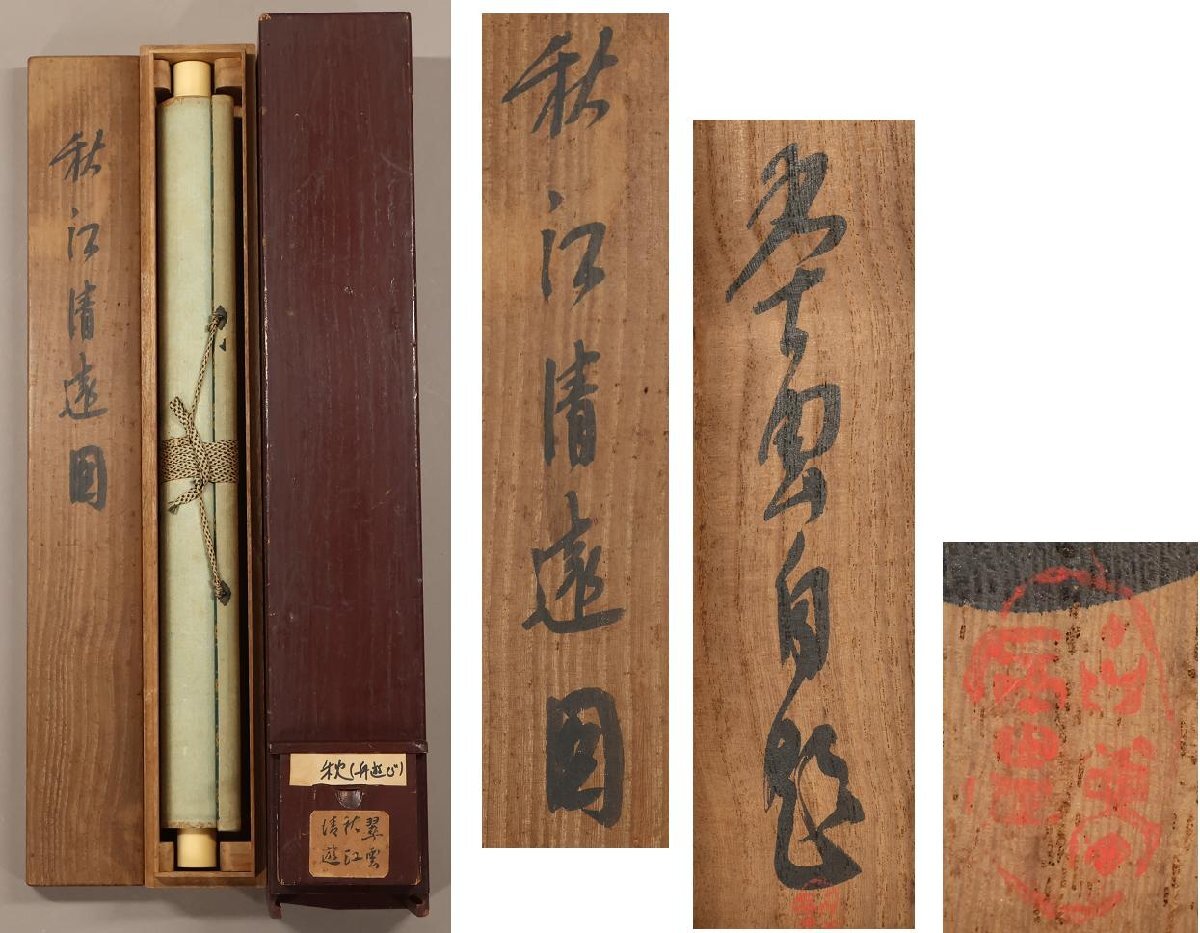 秋江清遠圖
秋(舟遊び)
翠雲
秋江
清遊
秋江清遠圖
翠雲自題